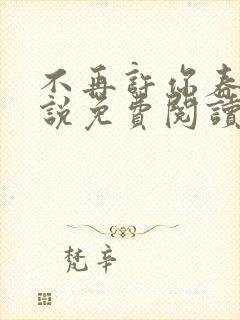 不再許你春
說免費閱讀
梵辛